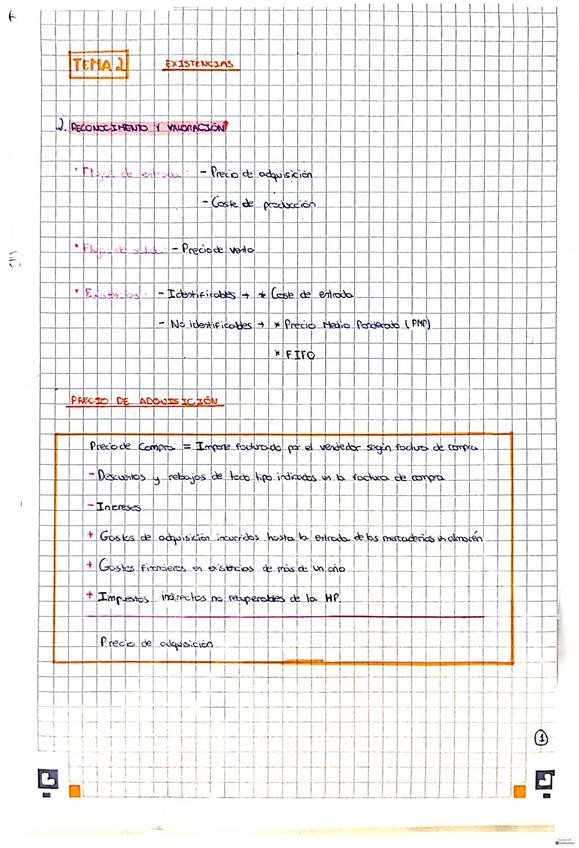 TEMA 2 EXISTENCIAS
2. RECONOCIMIENTO Y VALORACIÓN
• Flujos de entrada: - Precio de adquisición
- Coste de producción
• Flujos de salida: - Precio de venta
• - Identificables → * Coste de entrada
- No identificables → * Precio Medio Ponderado (PMP)
* FIFO
PRECIO DE ADQUISICIÓN
Precio de compra = Importe facturado por el vendedor según factura de compra
- Descuentos y rebajas de todo tipo indicados en la factura de compra
- Intereses
+ Gastos de adquisición incurridos hasta la entrada de las mercaderías en almacén
+ Gastos financieros en existencias de más de un año
+ Impuestos indirectos no recuperables de la HP.
Precio de adquisición
1